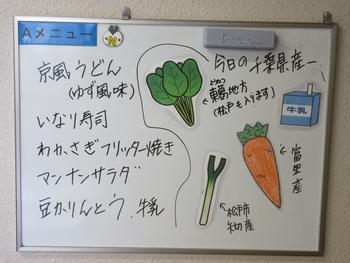 Aメニュー
京風うどん
(ゆず風味)
いなり寿司
わかさぎフリッター焼き
マンナンサラダ
豆かりんとう、牛乳
今日の千葉県産
とうかつ
東葛地方
(松戸も入ります)
牛乳
富里産
松戸市
矢切産